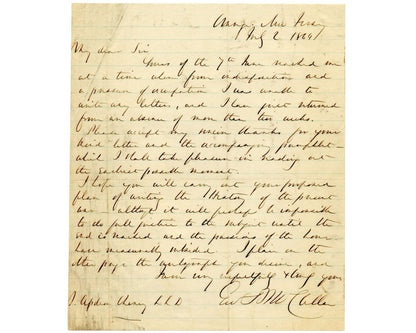 Orange New Jersey
July 2 1864
My dear Sir
Yours of the 7th June reached me
at a time when from indisposition and
a pressure of occupation I was unable to
write any letters, and I have just returned
from an absence of more than two weeks.
Please accept my sincere thanks for your
kind letter and the accompanying pamphlet
which I shall take pleasure in reading at
the earliest possible moment.
I hope you will carry out your proposed
plan of writing the History of the present
war - altho' it will perhaps be impossible
to do full justice to the subject until the
end is reached and the passions of the hour
have measurably subsided. I place on the
other page the autograph you desire, and
am very respectfully & truly yours
Geo B McClellan
L.L.D.